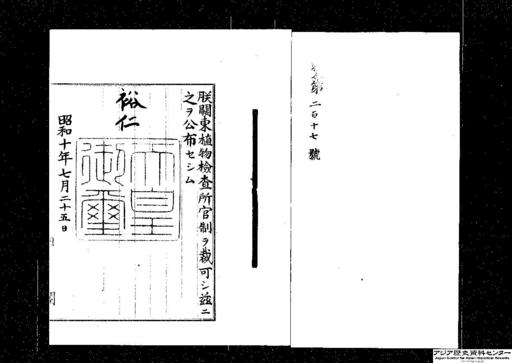 第二百十七號
朕關東植物檢査所官制ヲ裁可シ茲ニ
之ヲ公布セシム
裕仁
天皇御璽
昭和十年七月二十五日
アジア歴史資料センター
Japan Center for Asian Historical Records